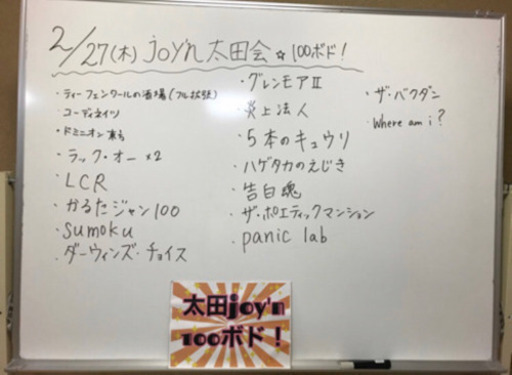 2/27(木) joy'n 太田会☆100ボド!
・ティーフェンタールの酒場(フル拡張)
・コーディネイツ
・ドミニオン
・ラック・オー ×2
・LCR
・かるたジャン100
・sumoku
・ダーウィンズ・チョイス
・グレンモアⅡ
・炎上法人
・5本のキュウリ
・ハゲタカのえじき
・告白魂
・ザ・ポエティックマンション
・panic lab
・ザ・バクダン
・Where am i?
太田joy'n
100ボド!